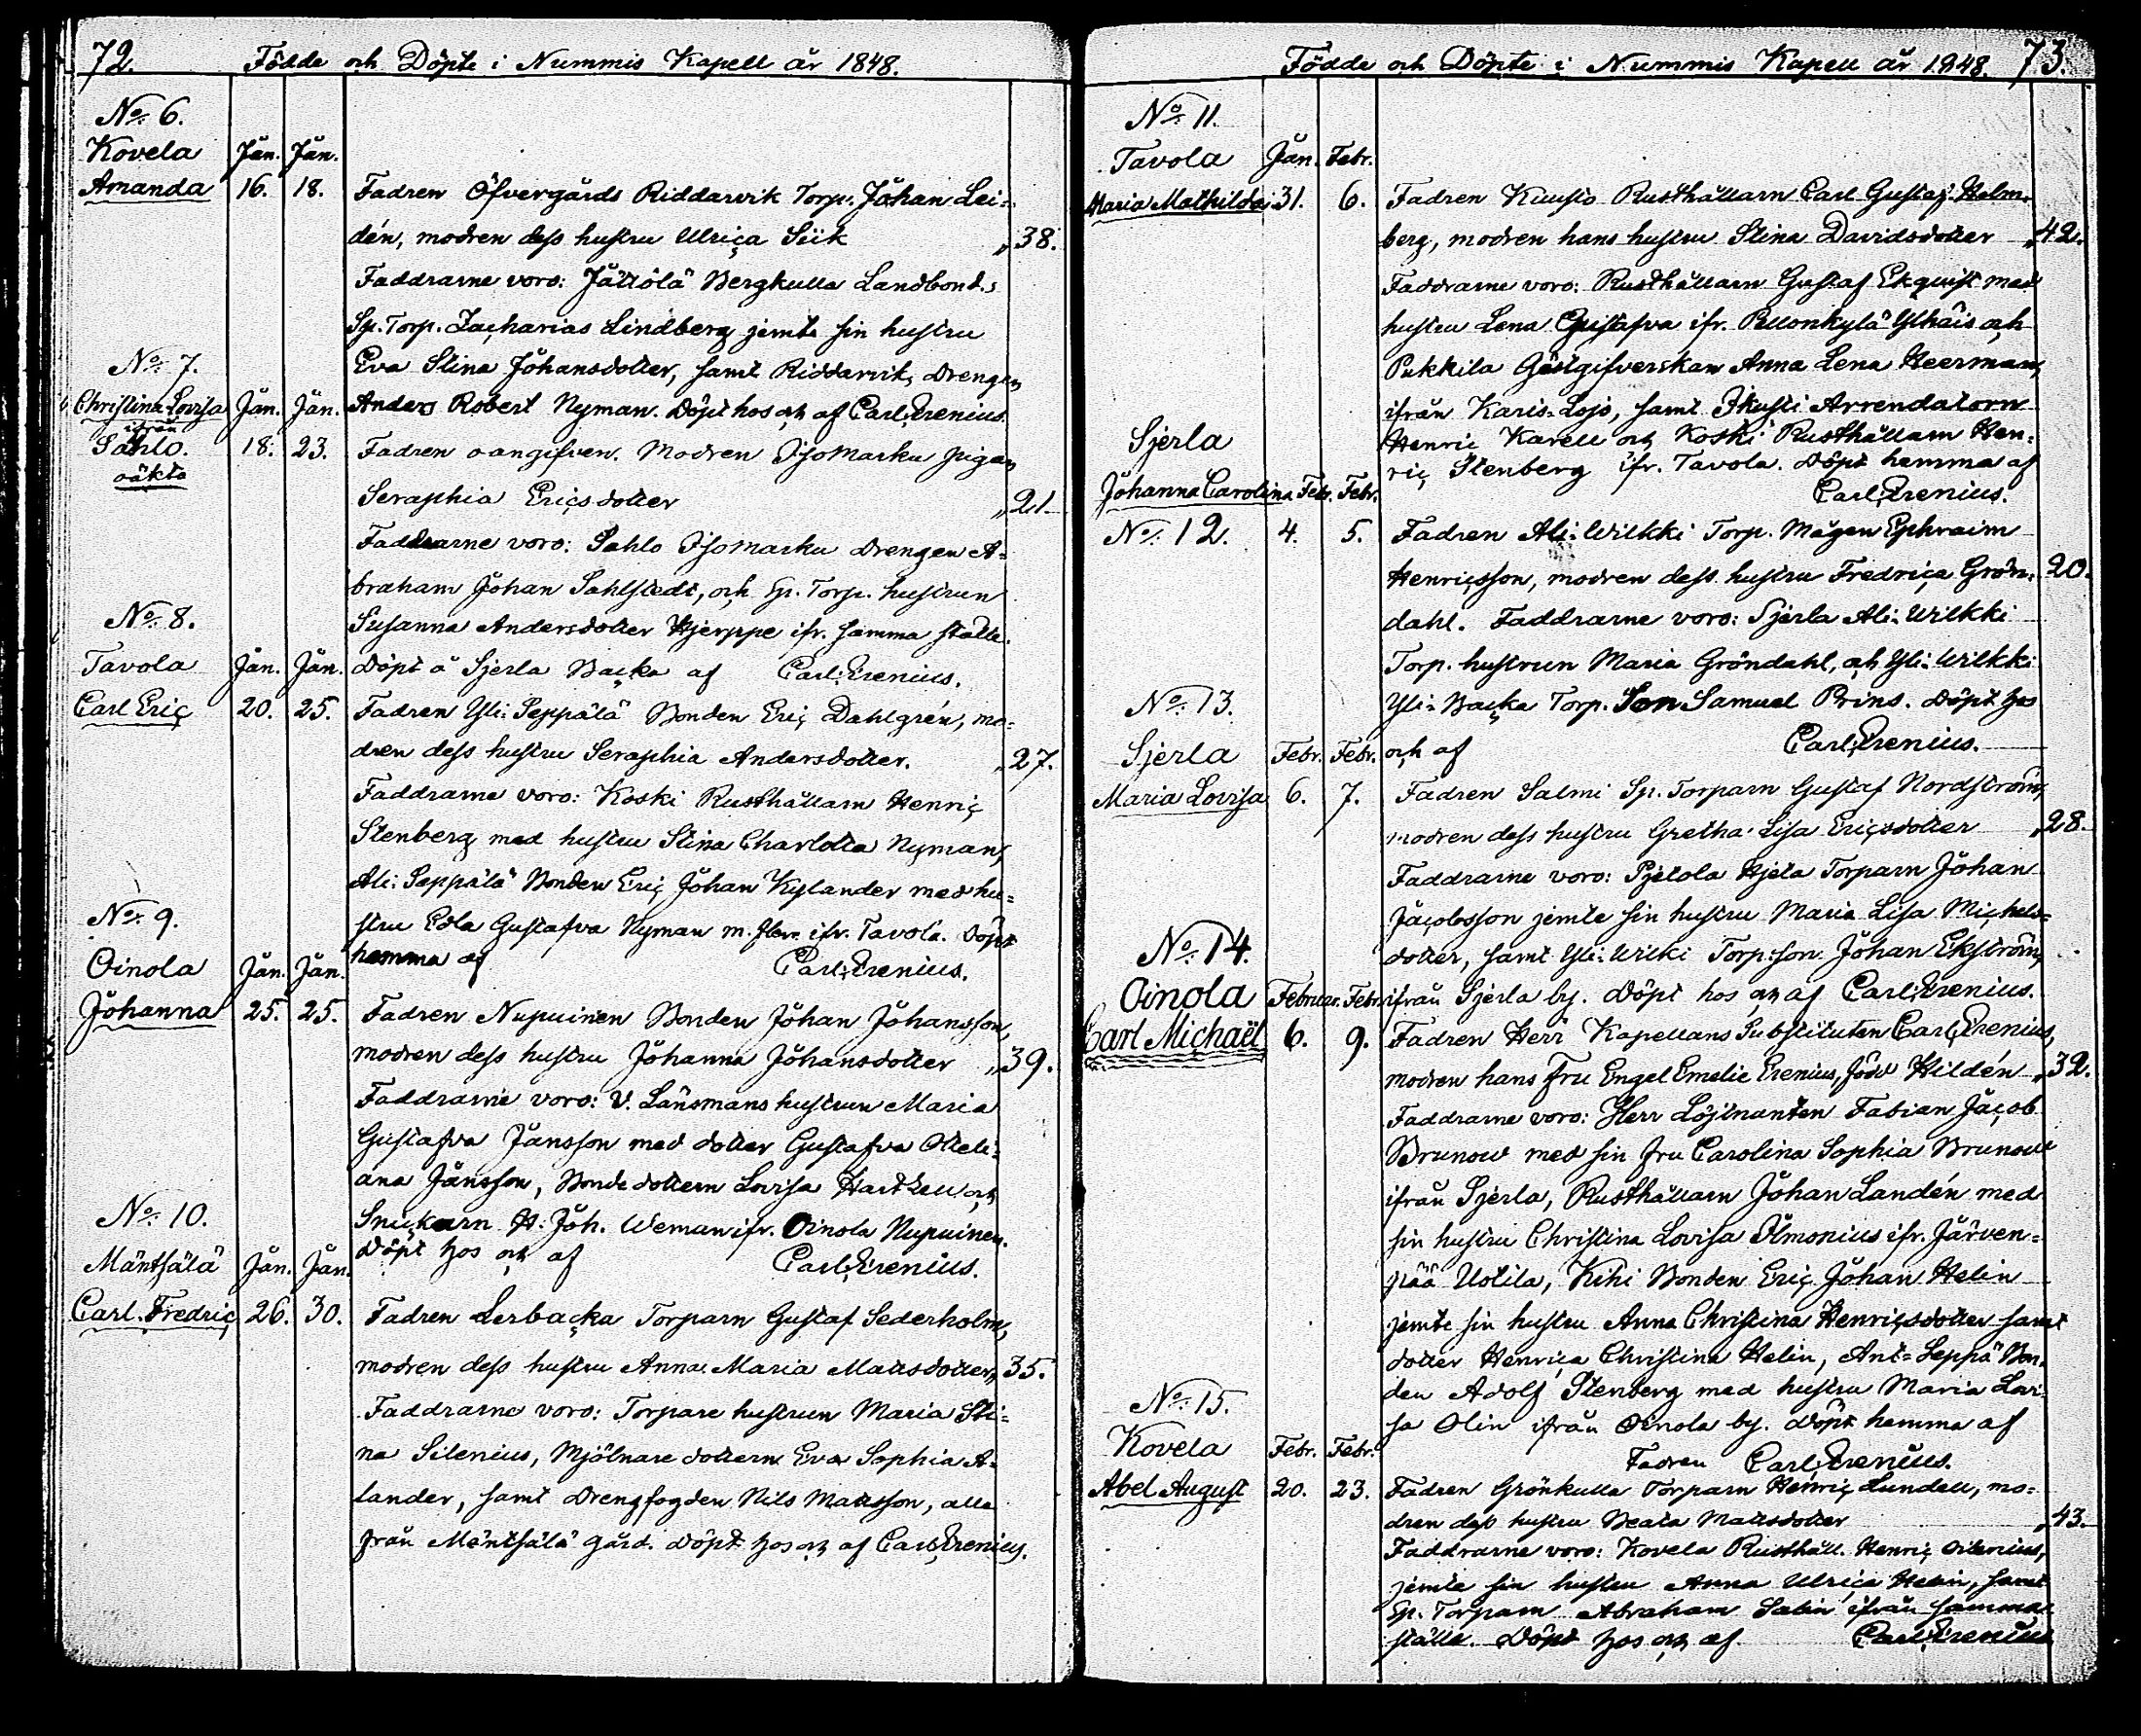 72. Födde och Döpte i Nummis Kapell år 1848.
No 6.
Kovela Jan. Jan.
Amanda 16. 18. Fadren Öfvergårds Riddarvik Torp. Johan Lei=
dén, modren dess hustru Ulrica Siik „38.
Faddrarne voro: Jättölä Bergkulla Landbond.s
Sp. Torp. Zacharias Lindberg jemte sin hustru
Eva Stina Johansdotter, samt Riddarviks Drengen
Anders Robert Nyman. Döpt hos och af Carl Erenius.
No 7.
Christina Lovisa Jan. Jan.
ifrån
Sahlo. 18. 23. Fadren oangifven. Modren Isomarku pigan
oäkta
Seraphia Ericsdotter „21
Faddrarne voro: Sahlo Isomarku Drengen A=
braham Johan Sahlstedt, och Sp. Torp. hustrun
Susanna Andersdotter Hjerppe ifr. samma ställe.
Döpt å Sjerla Backa af Carl Erenius.
No 8.
Tavola Jan. Jan.
Carl Eric 20. 25. Fadren Yli-Seppälä Bonden Eric Dahlgrén, mo=
dren dess hustru Seraphia Andersdotter. „27.
Faddrarne voro: Koski Rusthållarn Henric
Stenberg med hustru Stina Charlotta Nyman,
Ali-Seppälä Bonden Eric Johan Kylander med hu=
stru Edla Gustafva Nyman m. flere ifr. Tavola. Döpt
hemma af Carl Erenius.
No 9.
Oinola Jan. Jan.
Johanna 25. 25. Fadren Nupuinen Bonden Johan Johansson,
modren dess hustru Johanna Johansdotter „39.
Faddrarne voro: V. Länsmans hustrun Maria
Gustafva Jansson med dotter Gustafva Otteli=
ana Jansson, Bonde dottern Lovisa Hartzell och
Snickarn H: Joh. Weman ifr. Oinola Nupuinen.
Döpt hos och af Carl Erenius.
No 10.
Mäntsälä Jan. Jan.
Carl Fredric 26. 30. Fadren Lerbacka Torparn Gustaf Sederholm,
modren dess hustru Anna Maria Mattsdotter „35.
Faddrarne voro: Torpare hustrun Maria Sti=
na Silenius, Mjölnare dottern Eva Sophia A=
lander, samt Drengfogden Nils Mattsson, alla
från Mäntsälä gård. Döpt hos och af Carl Erenius.
Födde och Döpte i Nummis Kapell år 1848. 73.
No 11.
Tavola Jan. Febr.
Maria Mathilda 31. 6. Fadren Kuusto Rusthållarn Carl Gustaf Holm=
berg, modren hans hustru Stina Davidsdotter „42.
Faddrarne voro: Rusthållarn Gustaf Ekquist med
hustru Lena Gustafva ifr. Pellonkylä Ylhäis och
Pukkila Gästgifverskan Anna Lena Heerman,
ifrån Karis-Lojo, samt Arrendatorn
Henric Karell och Koski Rusthållarn Hen=
ric Stenberg ifr. Tavola. Döpt hemma af
Carl Erenius.
Sjerla
Johanna Carolina Febr. Febr.
No 12. 4. 5. Fadren Ali-Wilkki Torp. Mågen Ephraim
Henricsson, modren dess hustru Fredrica Grön= 20.
dahl. Faddrarne voro: Sjerla Ali-Wilkki
Torp. hustrun Maria Gröndahl, och Yli-Wilkki
Yli-Backa Torp. Son Samuel Prins. Döpt hos
och af Carl Erenius.
No 13.
Sjerla Febr. Febr.
Maria Lovisa 6. 7. Fadren Salmi Sp. Torparn Gustaf Nordström,
modren dess hustru Gretha Lisa Ericsdotter „28.
Faddrarne voro: Pjetola Hjeta Torparn Johan
Jacobsson jemte sin hustru Maria Lisa Michels=
dotter, samt Yli-Wilki Torp:son Johan Ekström,
ifrån Sjerla by. Döpt hos och af Carl Erenius.
No 14.
Oinola Februar. Febr.
Carl Michaël 6. 9. Fadren Herr Kapellans Substituten Carl Erenius,
modren hans Fru Engel Emelie Erenius, född Hildén „32.
Faddrarne voro: Herr Löjtnanten Fabian Jacob
Brunow med sin fru Carolina Sophia Brunow
ifrån Sjerla, Rusthållarn Johan Landén med
sin hustru Christina Lovisa Ilmonius ifr. Järven=
pää Uotila, Kihi Bonden Eric Johan Helin
jemte sin hustru Anna Christina Henricsdotter samt
dotter Henrica Christina Helin, Ant-Seppä Bon=
den Adolf Stenberg med hustru Maria Lovi=
sa Olin ifrån Oinola by. Döpt hemma af
Fadren Carl Erenius.
No 15.
Kovela Febr. Febr.
Abel August 20. 23. Fadren Grönkulla Torparn Henric Lundell, mo=
dren dess hustru Beata Mattsdotter „43.
Faddrarne voro: Kovela Rusthåll. Henric
jemte sin hustru Anna Ulrica Helin, samt
Sp. Torparn Abraham Salin ifrån samma
ställe. Döpt hos och af Carl Erenius